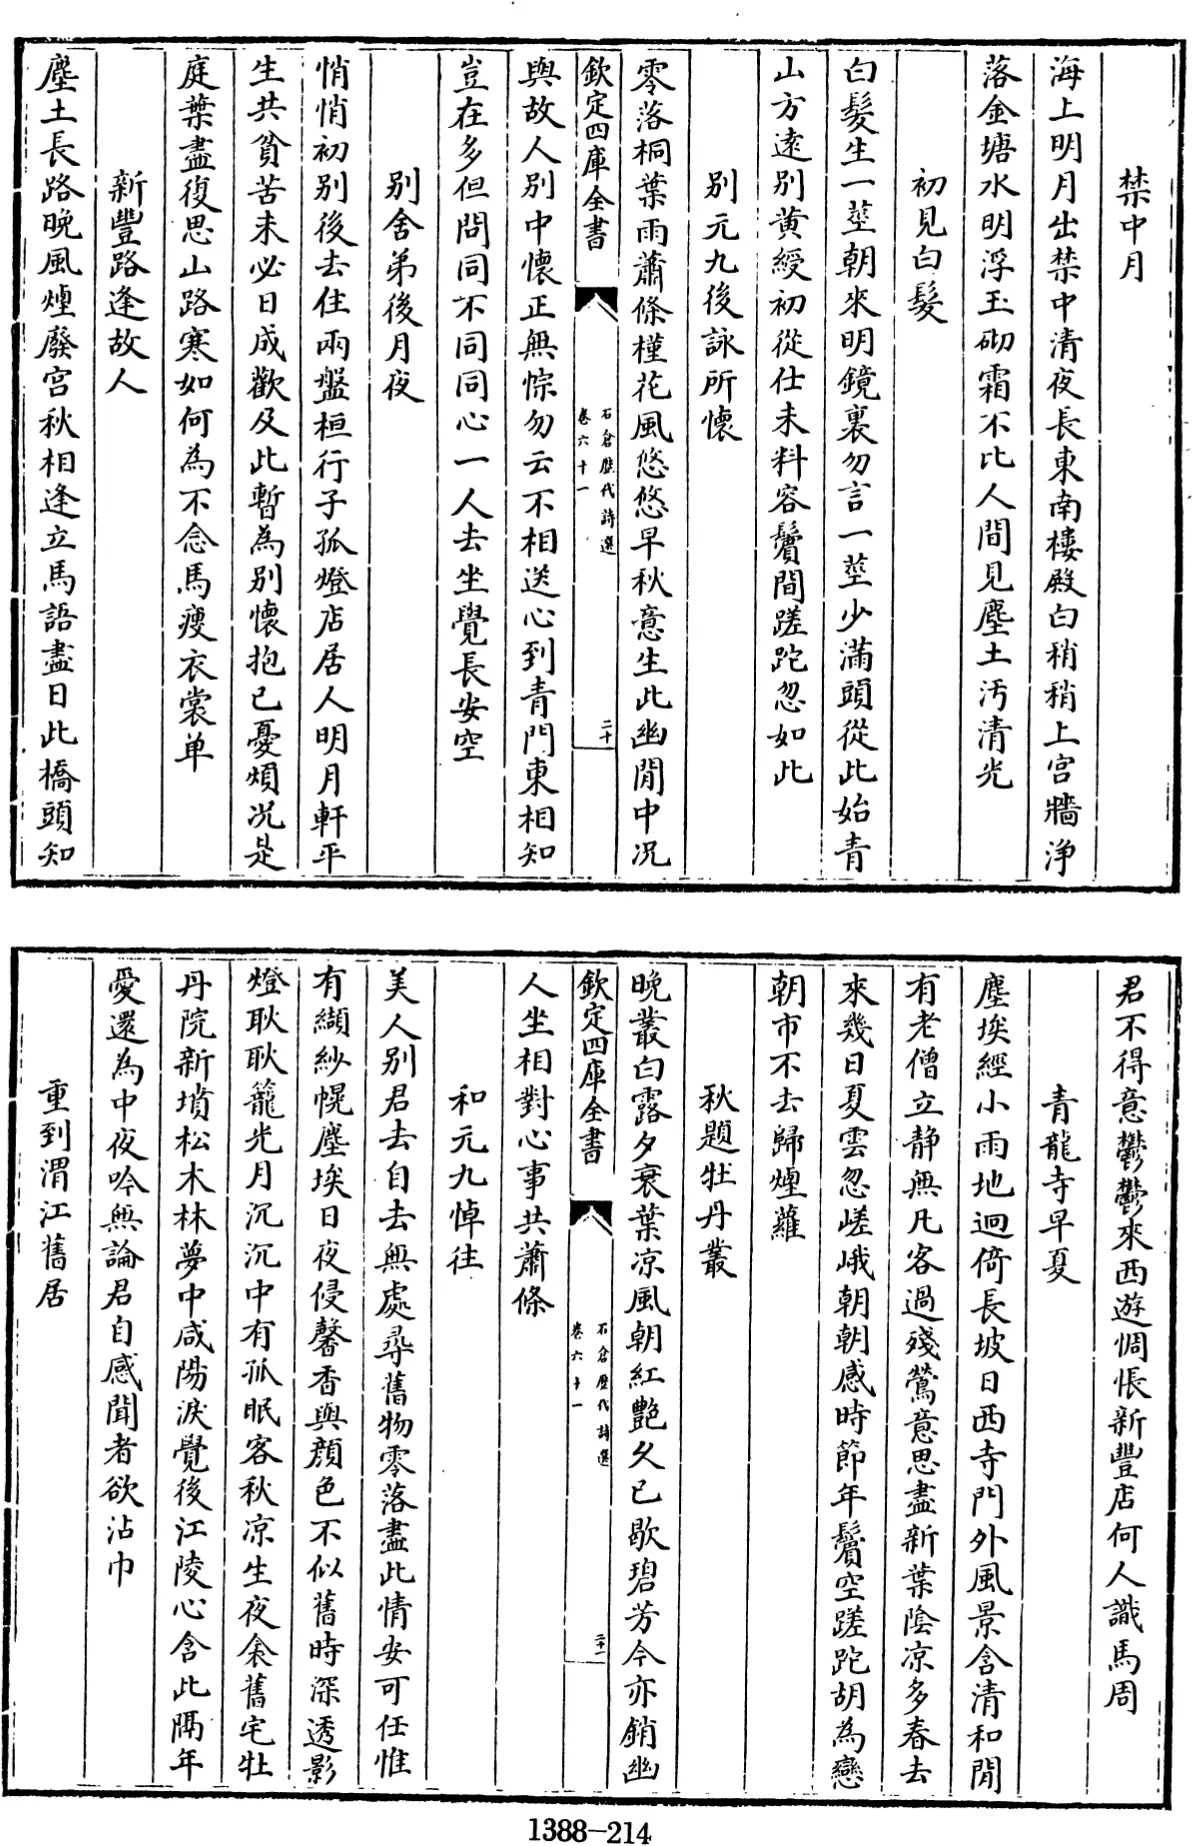 禁中月
海上明月出禁中清夜長東南樓殿白稍稍上宮牆淨
落金塘水明浮玉砌霜不比人間見塵土汚清光
初見白髮
白髮生一莖朝來明鏡裏勿言一莖少滿頭從此始青
山方遠别黄綬初從仕未料容鬢間蹉跎忽如此
别元九後詠所懷
零落桐葉雨蕭條槿花風悠悠早秋意生此幽閒中况
欽定四庫全書
石倉歷代詩選
卷六十一
二十
與故人别中懷正無悰勿云不相送心到青門東相知
豈在多但問同不同同心一人去坐覺長安空
别舍弟後月夜
悄悄初别後去住兩盤桓行子孤燈店居人明月軒平
生共貧苦未必日成歡及此暫為别懷抱已憂煩况是
庭葉盡復思山路寒如何為不念馬瘦衣裳单
新豐路逢故人
塵土長路晚風煙廢宮秋相逢立馬語盡日此橋頭知
君不得意鬱鬱來西遊惆悵新豐店何人識馬周
青龍寺早夏
塵埃經小雨地迥倚長坡日西寺門外風景含清和閒
有老僧立静無凡客過殘鶯意思盡新葉陰凉多春去
來幾日夏雲忽嵯峨朝朝感時節年鬢空蹉跎胡為戀
朝市不去歸煙蘿
秋題牡丹叢
晚叢白露夕衰葉凉風朝紅艷久已歇碧芳今亦銷幽
欽定四庫全書
石倉歷代詩選
卷六十一
二十一
人坐相對心事共蕭條
和元九悼往
美人别君去自去無處尋舊物零落盡此情安可任惟
有纈紗幌塵埃日夜侵馨香與顔色不似舊時深透影
燈耿耿籠光月沉沉中有孤眠客秋凉生夜衾舊宅牡
丹院新墳松木林夢中咸陽淚覺後江陵心含此隔年
愛還為中夜吟無論君自感聞者欲沾巾
重到渭江舊居
1388-214